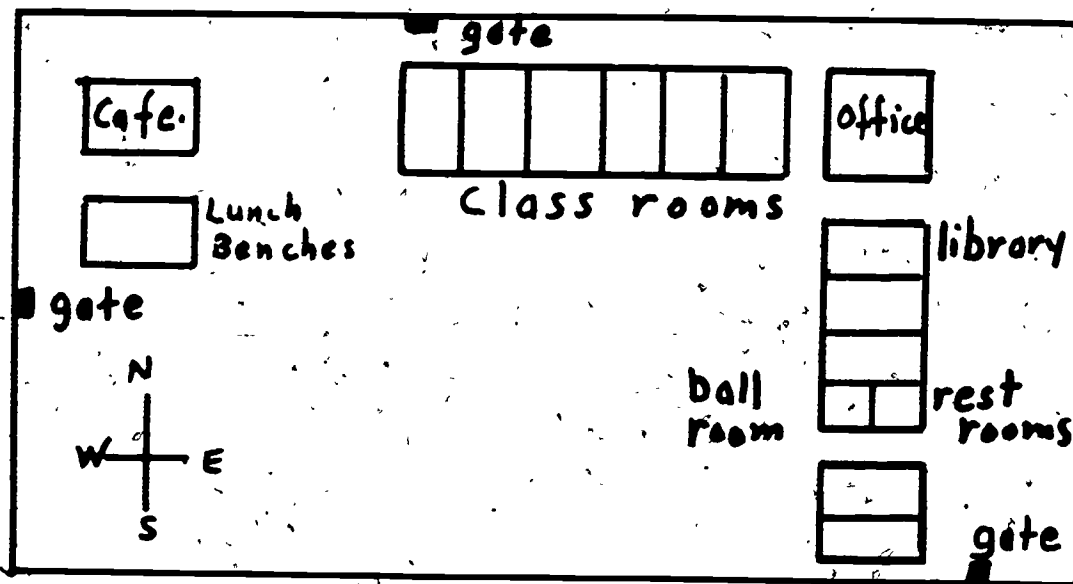 gate
Cafe.
office
Class rooms
Lunch
Benches
library
gate
N
W E
S
ball
room
rest
rooms
gate